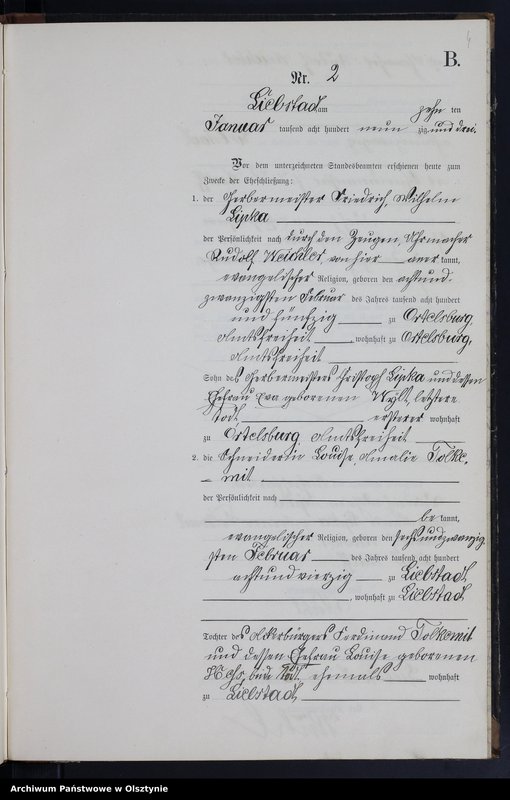 B.
Nr. 2
Liebstadt am zehn ten
Januar tausend acht hundert neun zig und drei.
Vor dem unterzeichneten Standesbeamten erschienen heute zum
Zwecke der Eheschließung:
1. der Gerbermeister Friedrich, Wilhelm
Lipka
der Persönlichkeit nach durch den Zeugen, Uhrmacher
Rudolf Weichler, von hier aner kannt,
evangelischer Religion, geboren den achtund-
zwanzigsten Februar des Jahres tausend acht hundert
und fünfzig zu Ortelsburg,
Amtsfreiheit, wohnhaft zu Ortelsburg,
Amtsfreiheit
Sohn des Gerbermeisters Christoph Lipka und dessen
Ehefrau Eva geborenen letztere
todt, ersterer wohnhaft
zu Ortelsburg Amtsfreiheit
2. die Schneiderin Louise, Amalie Tolke-
mit
der Persönlichkeit nach
be kannt,
evangelischer Religion, geboren den sechsundzwanzig
sten Februar des Jahres tausend acht hundert
achtundvierzig zu Liebstadt,
, wohnhaft zu Liebstadt
Tochter des Ackerbürgers Ferdinand Tolkemit
und dessen Ehefrau Louise geborenen
beide todt, ehemals wohnhaft
zu Liebstadt
Archiwum Państwowe w Olsztynie